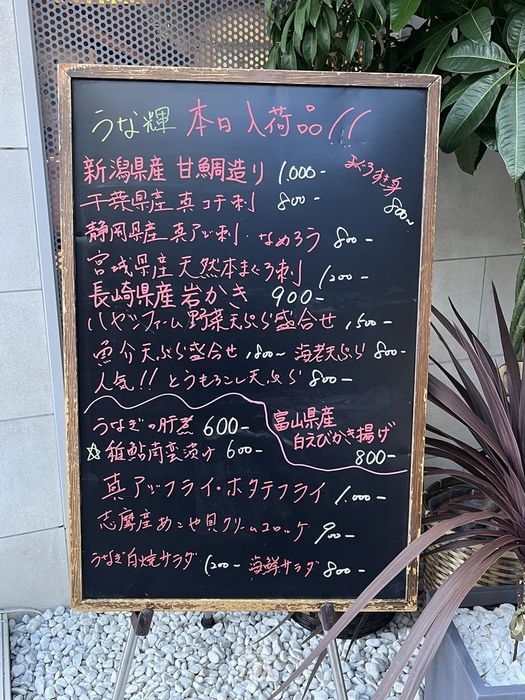 うな輝 本日入荷品!!
新潟県産 甘鯛造り 1.000-
まぐろすき身 800-
千葉県産 真コチ刺 800-
静岡県産 真アジ刺・なめろう 800-
宮城県産 天然本まぐろ刺 1200-
長崎県産 岩かき 900-
ハヤシファーム 野菜天ぷら盛合せ 1,500-
魚介天ぷら盛合せ 1,800- 海老天ぷら 800-
人気!! とうもろこし天ぷら 800-
うなぎの肝煮 600-
☆稚鮎南蛮漬け 600-
富山県産
白えびかき揚げ
800-
真アジフライ・ホタテフライ 1.000-
志摩産あこや貝クリームコロッケ 900-
うなぎ白焼サラダ 1200- 海鮮サラダ 800-